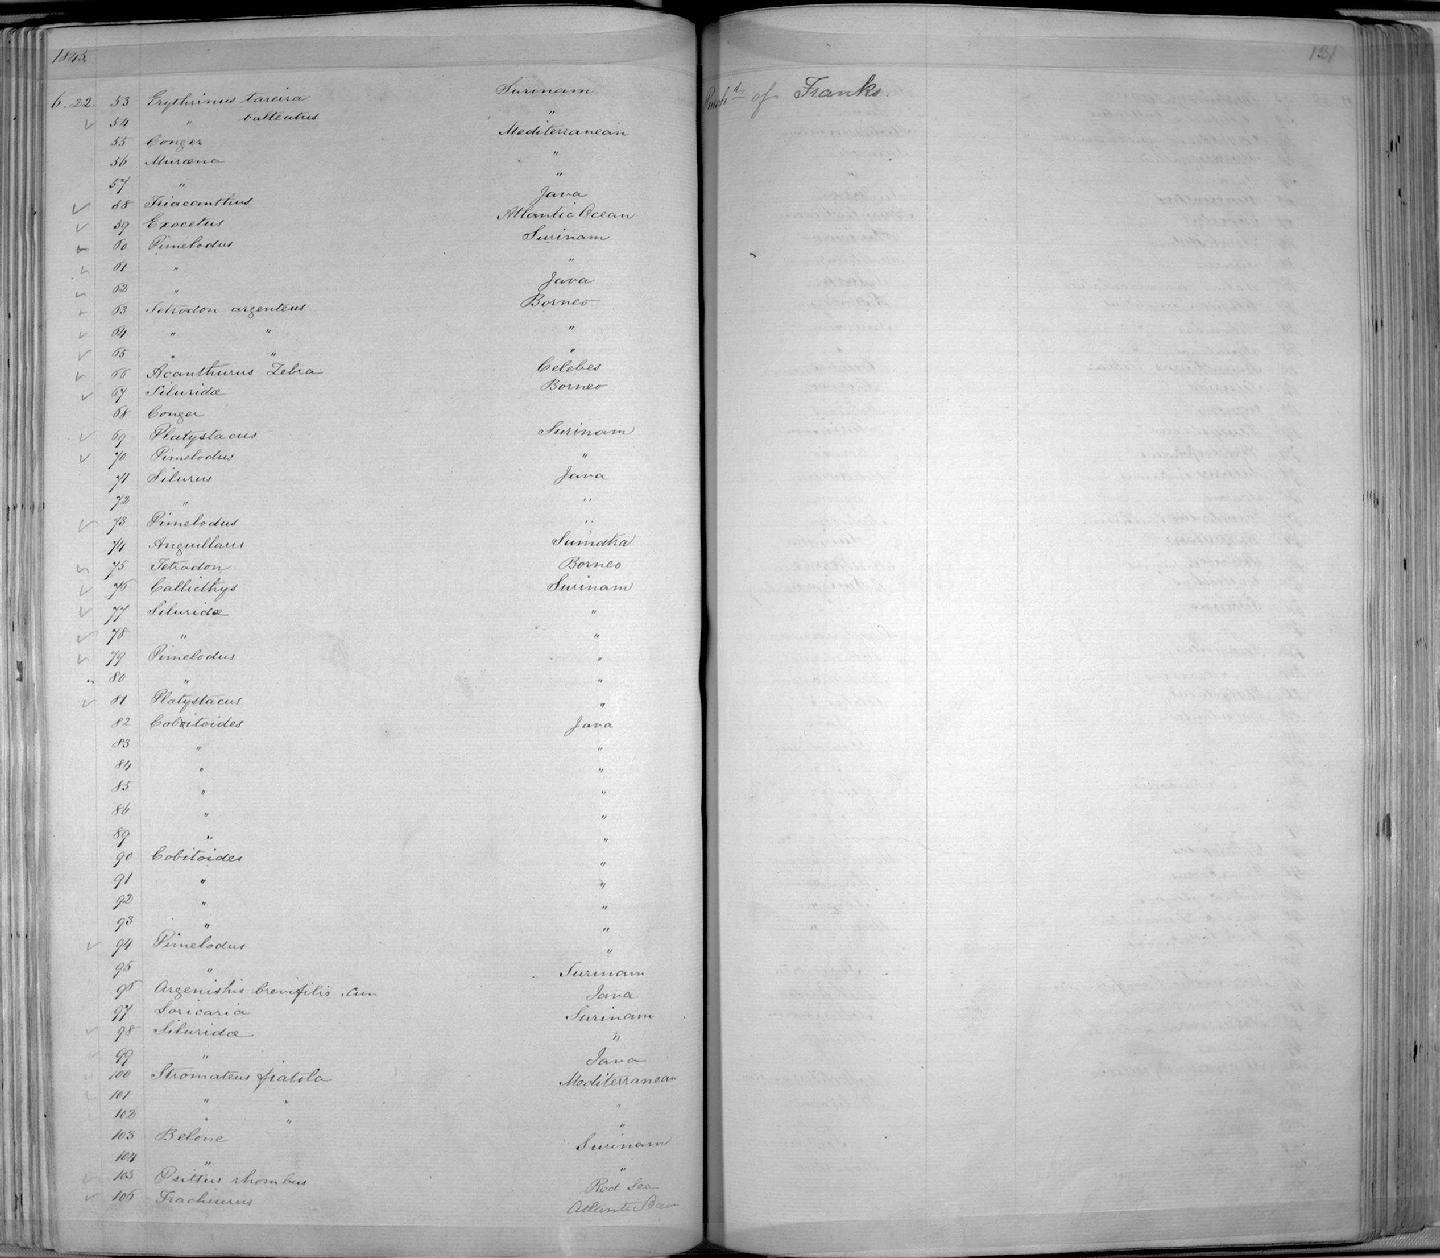 1845
131
6. 22 53 Erythrinus tareira Surinam Purchd of Franks
54 " "
55 Conger Mediterranean
56 Muræna "
57 " "
58 Triacanthus Java
59 Exocetus Atlantic Ocean
60 Pimelodus Surinam
61 " "
62 " Java
63 Tetrodon argenteus Borneo
64 " " "
65 " " "
66 Acanthurus Zebra Celebes
67 Siluridæ Borneo
68 Conger
69 Platystacus Surinam
70 Pimelodus "
71 Silurus Java
72 " "
73 Pimelodus "
74 Anguillaris Sumatra
75 Tetradon Borneo
76 Callicthys Surinam
77 Siluridæ "
78 " "
79 Pimelodus "
" 80 " "
81 Platystacus "
82 Cobitoides Java
83 " "
84 " "
85 " "
86 " "
89 " "
90 Cobitoides "
91 " "
92 " "
93 " "
94 Pimelodus "
95 " Surinam
96 brevifilis . Cuv Java
97 Loricaria Surinam
98 Siluridæ "
99 " Java
100 Stromateus fiatola Mediterranean
101 " " "
102 " " "
103 Belone Surinam
104 " "
105 rhombus Red Sea
106 Trachurus Atlantic Ocean